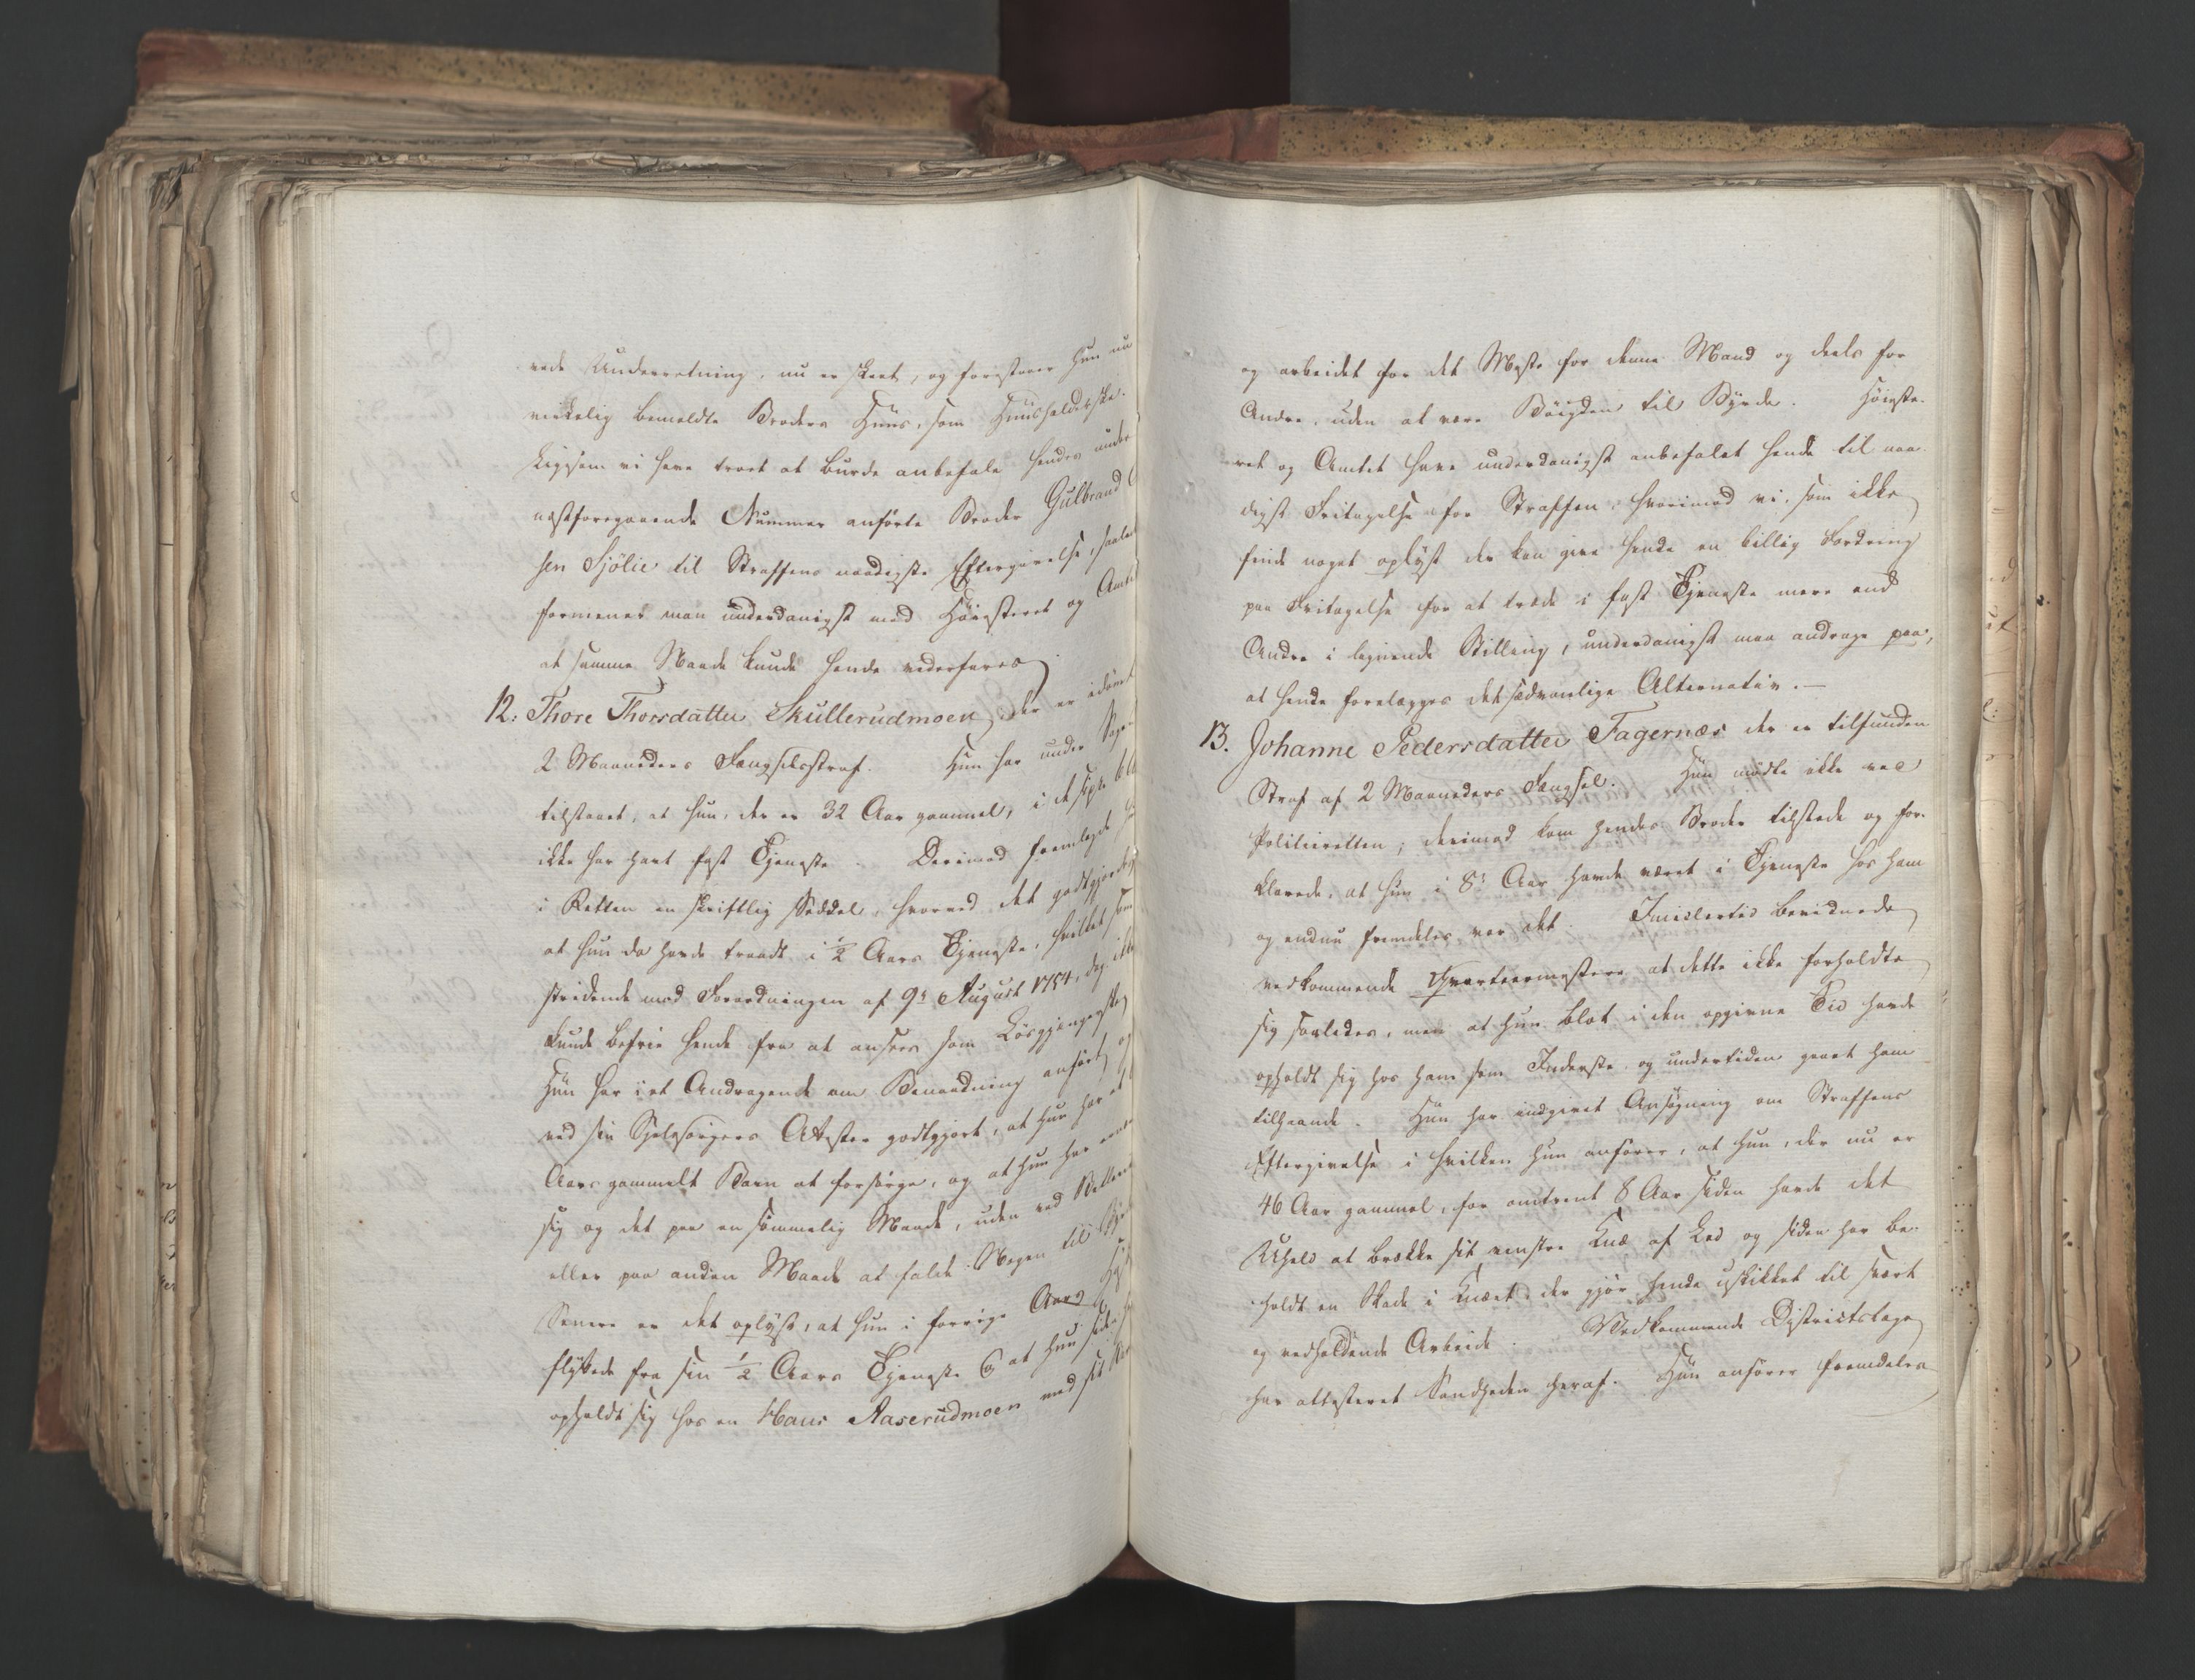 vede Underretning, nu er skeet, og forestaaer hun nu
virkelig bemeldte Broders Huus, som Huusholderske.
Ligesom vi have troet at burde anbefale hendes under
næstforegaaende Nummer anförte Broder Gulbrand
sen Sjölie til Straffens naadigste Eftergivelse, saale
formener man underdanigst med Höiesteret og Amt
at samme Naade kunde hende vederfares.
12. Thore Thorsdatter Skullerudmoen, der er idömt
2 Maaneders Fængselsstraf. Hun har under Sag
tilstaaet, at hun, der er 32 Aar gammel, i de sidste
ikke har havt fast Tjeneste. Derimod fremlagde
i Retten en skriftlig Seddel, hvorved det godtgjordes
at hun da havde traadt i ½ Aars Tjeneste, hvilket som
stridende mod Forordningen af 9de August 1754, dog ikke
kunde befrie hende fra at ansees som Lösgjængerske
Hun har i et Andragende om Benaadning anfört og
ved sin Sjelesörgers Attester godtgjort, at hun har et
Aars gammelt Barn at forsörge, og at hun har ernæ
sig og det paa en sömmelig Maade, uden ved Betlerie
eller paa anden Maade at falde Nogen til Byr
Senere er det oplyst, at hun i forrige Aar
flyttede fra sin ½ Aars Tjeneste og at hun siden
opholdt sig hos en Hans Aaserudmoen med sit Bar
og arbeidet for det Meste for denne Mand og deels for
Andre, uden at være Böigden til Byrde. Höieste-
ret og Amtet have underdanigst anbefalet hende til naa
digst Fritagelse for Straffen; hvorimod vi, som ikke
finde noget oplyst der kan give hende en billig Fordring
paa Fritagelse for at træde i fast Tjeneste mere end
Andre i lignende Stilling, underdanigst maa andrage paa,
at hende forelægges det sædvanlige Alternativ.—
13. Johanne Pedersdatter Fagernæs der er tilfunden
Straf af 2 Maaneders Fængsel. Hun mödte ikke ved
Politieretten; derimod kom hendes Broder tilstede og for-
klarede, at hun i 8te Aar havde været i Tjeneste hos ham
og endnu fremdeles var det. Imidlertid bevidnede
vedkommende Qvarteermestere at dette ikke forholdte
sig saaledes, men at hun blot i den opgivne Tid havde
opholdt sig hos ham som Inderste og undertiden gaaet ham
tilhaande. Hun har indgivet Ansögning om Straffens
Eftergivelse i hvilken hun anförer, at hun, der nu er
46 Aar gammel, for omtrent 8 Aar siden havde det
Uheld at brække sit venstre Knæ af Led og siden har be-
holdt en Skade i Knæet, der gjör hende uskikket til svært
og vedholdende Arbeide. Vedkommende Districtslæge
har attesteret Sandheden heraf. Hun anförer fremdeles